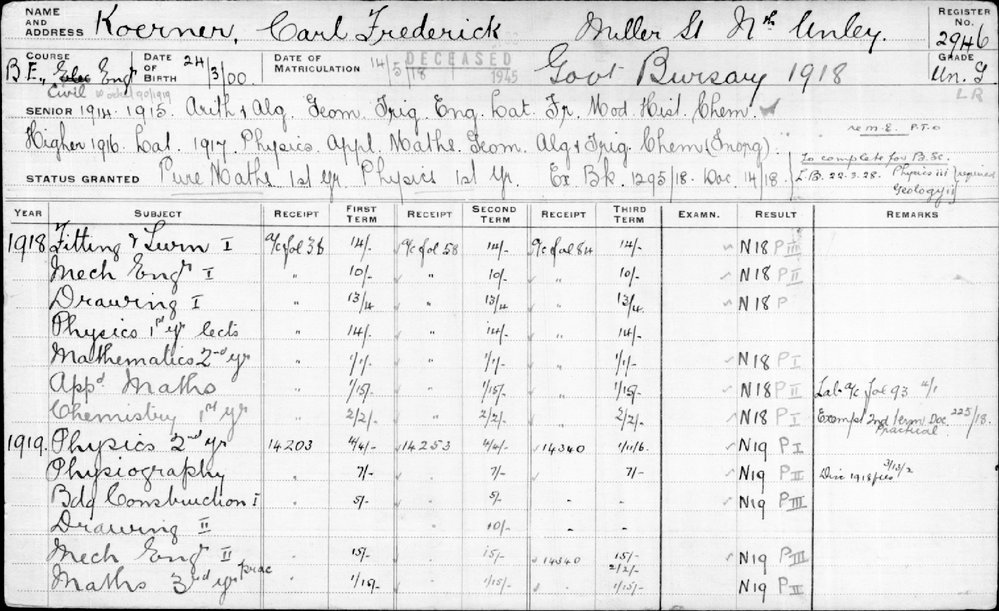 NAME AND ADDRESS Koerner, Carl Frederick Miller St Nth Unley. REGISTER No. 2946
COURSE B.E., Elec Engr Civil DATE OF BIRTH 24/3/00 DATE OF MATRICULATION 14/5/18 DECEASED 1945 Govt Bursary 1918 GRADE Un. G LR
SENIOR 1914. 1915. Arith & Alg. Geom. Trig. Eng. Lat. Fr. Mod Hist. Chem.
Higher 1916. Lat. 1917. Physics. Appl. Maths. Geom. Alg & Trig. Chem (Inorg). rem E. P.T.O
STATUS GRANTED Pure Maths 1st Yr. Physics 1st Yr. Ex Bk. 1295/18. Doc. 14/18.
To complete for B.Sc.
L.B. 22.3.28. Physics iii Geology ii required
YEAR SUBJECT RECEIPT FIRST TERM RECEIPT SECOND TERM RECEIPT THIRD TERM EXAMN. RESULT REMARKS
1918 Fitting & Turn I a/c fol 36 14/- a/c fol 58 14/- a/c fol 84 14/- N18 P III
Mech Engr I " 10/- " 10/- " 10/- N18 P II
Drawing I " 13/4 " 13/4 " 13/4. N18 P
Physics 1st yr lects " 14/- " 14/- " 14/-
Mathematics 2nd yr " 1/1/- " 1/1/- " 1/1/- N18 P I
Appd. Maths " 1/15/- " 1/15/- " 1/15/- N18 P II Lab a/c fol 93 4/1
Chemistry 1st yr " 2/2/- " 2/2/- " 2/2/- N18 P I Exempt 2nd term Doc. 225/18. Practical
1919. Physics 2nd yr 14203 4/4/- 14253 4/4/- 14340 1/11/6. N19 P I
Physiography 7/- 7/- 7/- N19 P II 1918 fees 3/13/2
Bdg Construction I 5/- 5/- N19 P III
Drawing II 10/-
Mech Engr II 15/- 15/- 14340 15/- N19 P III
Maths 3rd yr prac 1/15/- 1/15/- 2/2/- 1/15/- N19 P II